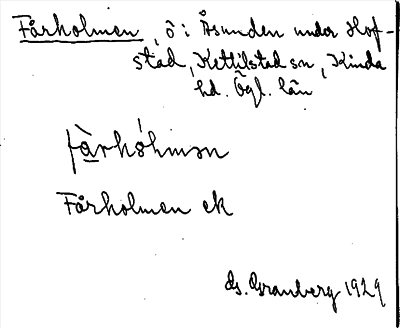 Fårholmen, ö i Åsunden under Hof-
stad, Kettilstad sn, Kinda
hd. Ögl. län
fàrhólmən
Fårholmen ek
G. Granberg 1929